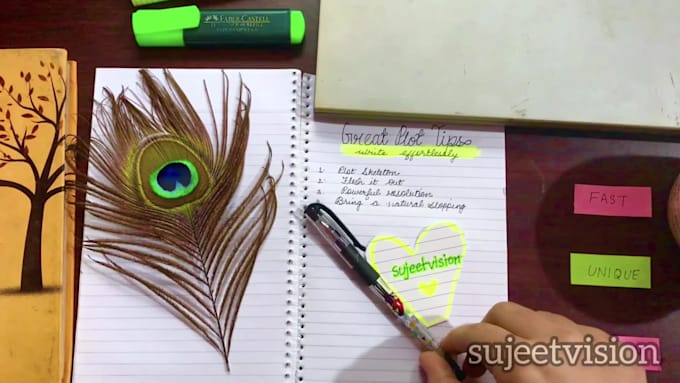 FABER-CASTELL
Great Plot Tips
write effortlessly
1. Plot Skeleton
2. Flesh it out
3. Powerful resolution
Bring a natural stopping
sujeetvision
FAST
UNIQUE
sujeetvision